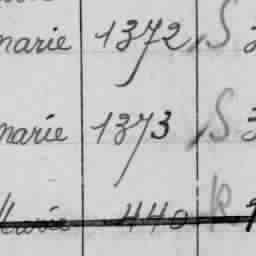 marie 1372 S
marie 1373 S
Marie 440 R